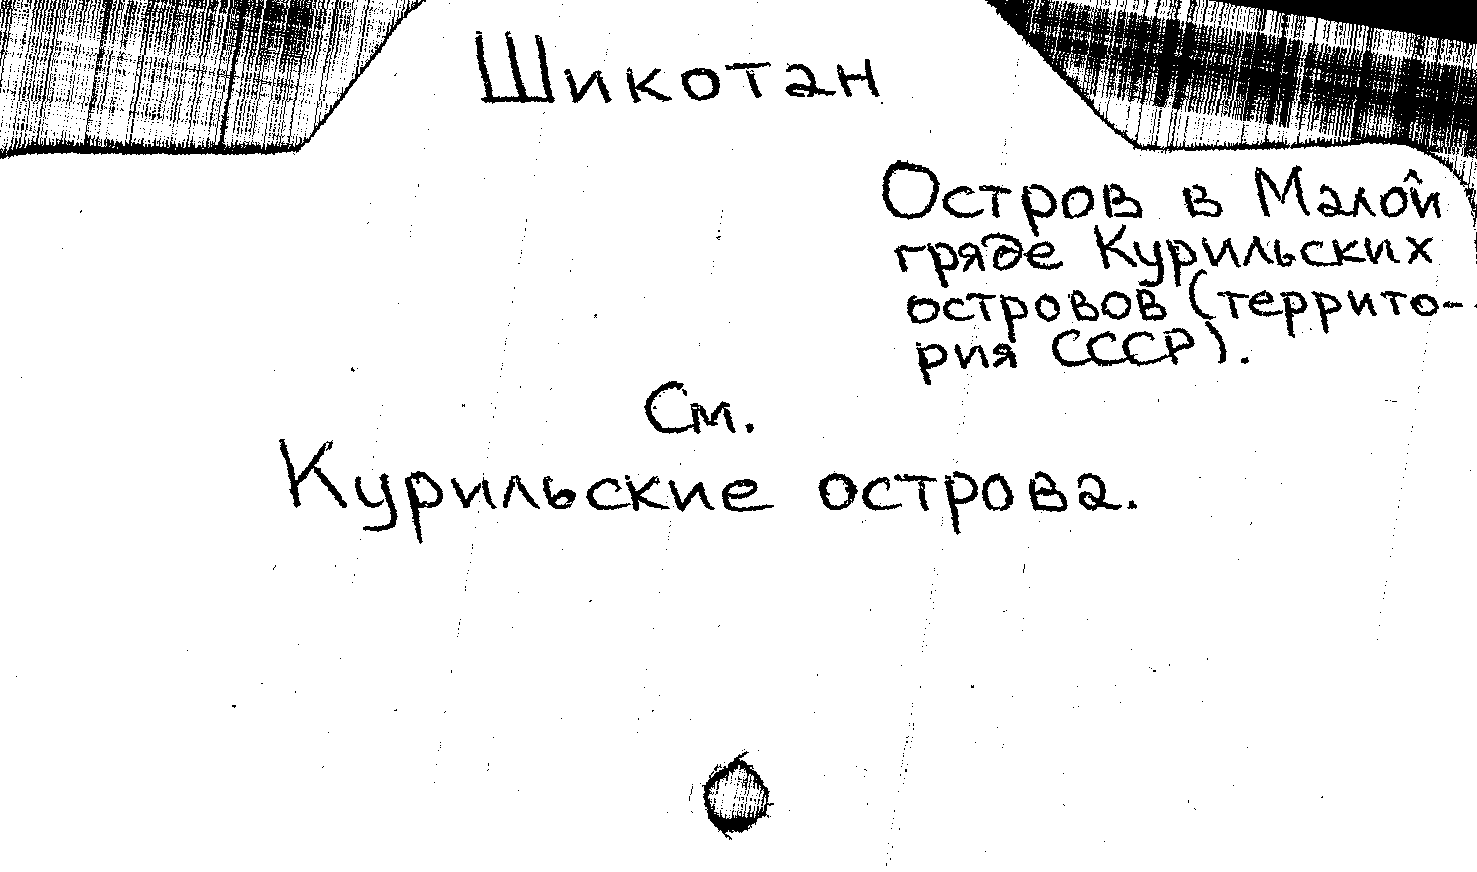 Шикотан
Остров в Малой
гряде Курильских
островов (террито-
рия СССР).
См.
Курильские острова.